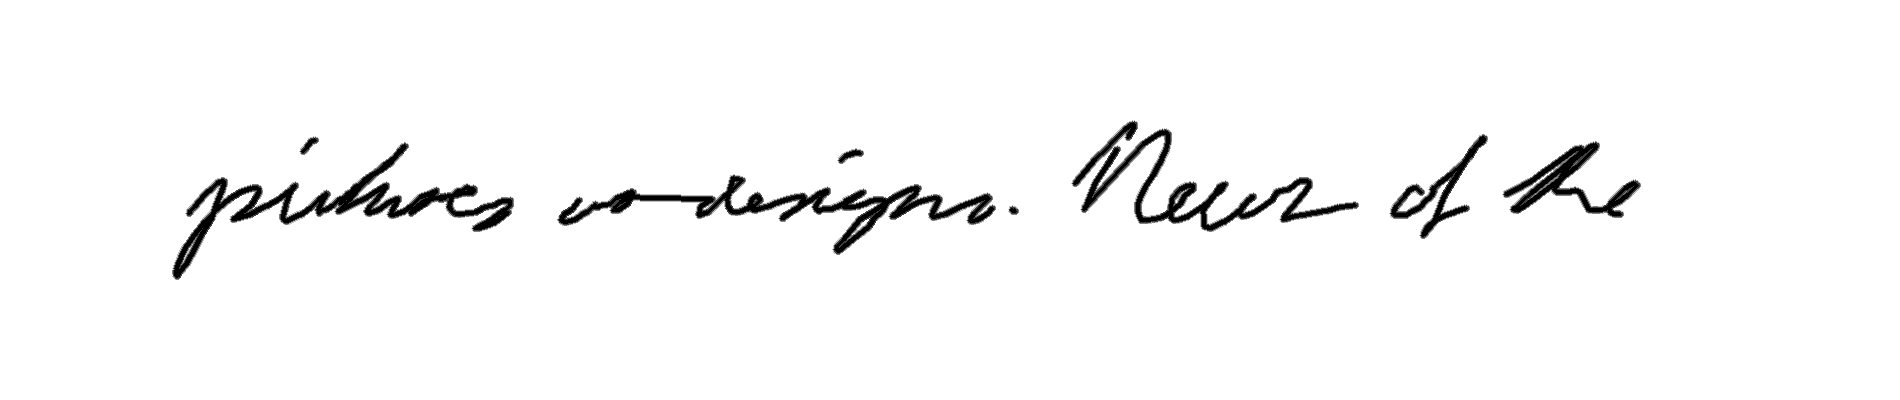 pictures or designs. News of the